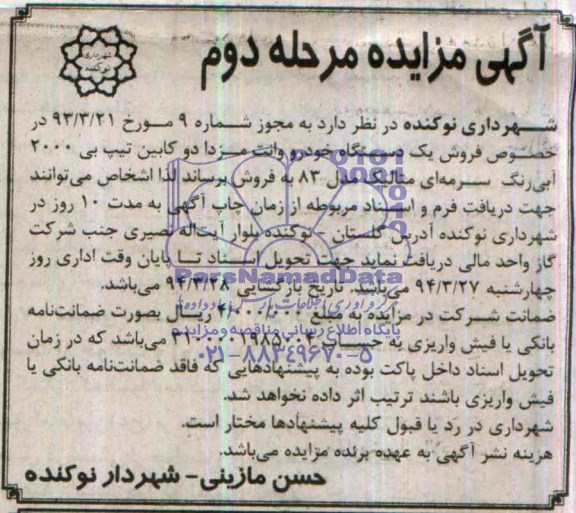 آگهی مزایده مرحله دوم
شهرداری نوکنده
شهرداری نوکنده در نظر دارد به مجوز شماره ۹ مورخ ۹۳/۳/۲۱ در
خصوص فروش یک دستگاه خودرو وانت مزدا دو کابین تیپ بی ۲۰۰۰
آبی‌رنگ سرمه‌ای متالیک مدل ۸۳ به فروش برساند لذا اشخاص می‌توانند
جهت دریافت فرم و اسناد مربوطه از زمان چاپ آگهی به مدت ۱۰ روز در
شهرداری نوکنده آدرس گلستان - نوکنده بلوار آیت‌اله نصیری جنب شرکت
گاز واحد مالی دریافت نماید جهت تحویل اسناد تا پایان وقت اداری روز
چهارشنبه ۹۴/۳/۲۷ می‌باشد. تاریخ بازگشایی ۹۴/۳/۲۸ می‌باشد.
ضمانت شرکت در مزایده به مبلغ ریال بصورت ضمانت‌نامه
بانکی یا فیش واریزی به حساب می‌باشد که در زمان
تحویل اسناد داخل پاکت بوده به پیشنهادهایی که فاقد ضمانت‌نامه بانکی یا
فیش واریزی باشند ترتیب اثر داده نخواهد شد.
شهرداری در رد یا قبول کلیه پیشنهادها مختار است.
هزینه نشر آگهی به عهده برنده مزایده می‌باشد.
حسن مازینی - شهردار نوکنده
ParsNamadData
پایگاه اطلاع رسانی مناقصه و مزایده
۰۲۱-۸۸۳۴۹۶۷۰-۵